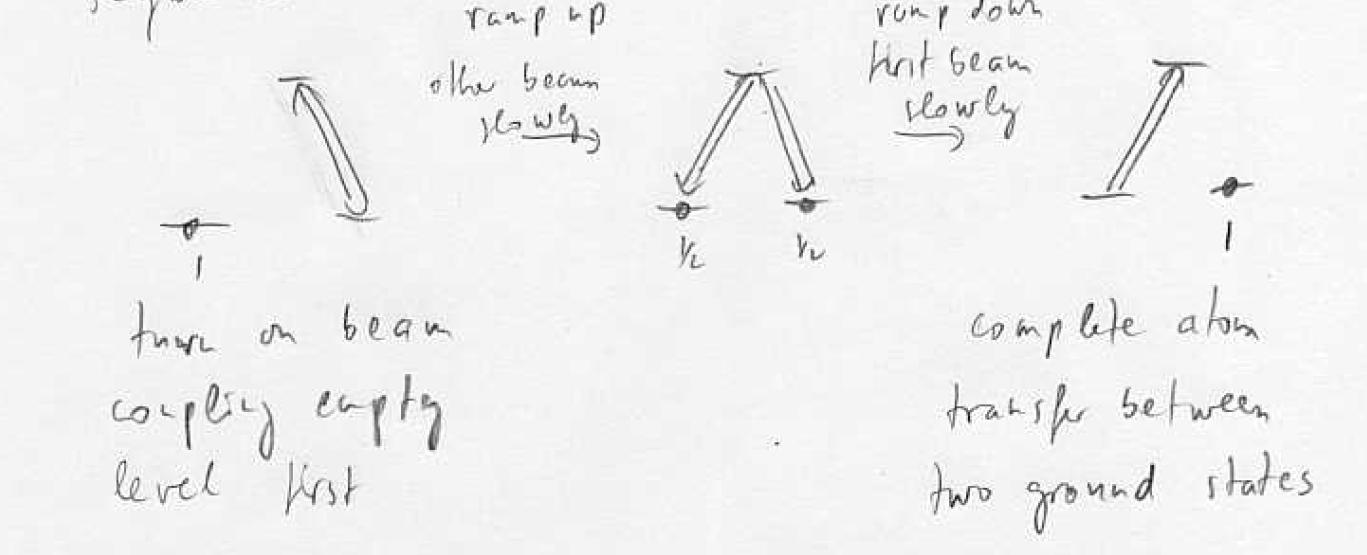 ramp up
other beam
slowly
ramp down
first beam
slowly
1
1/2
1/2
1
turn on beam
coupling empty
level first
complete atom
transfer between
two ground states